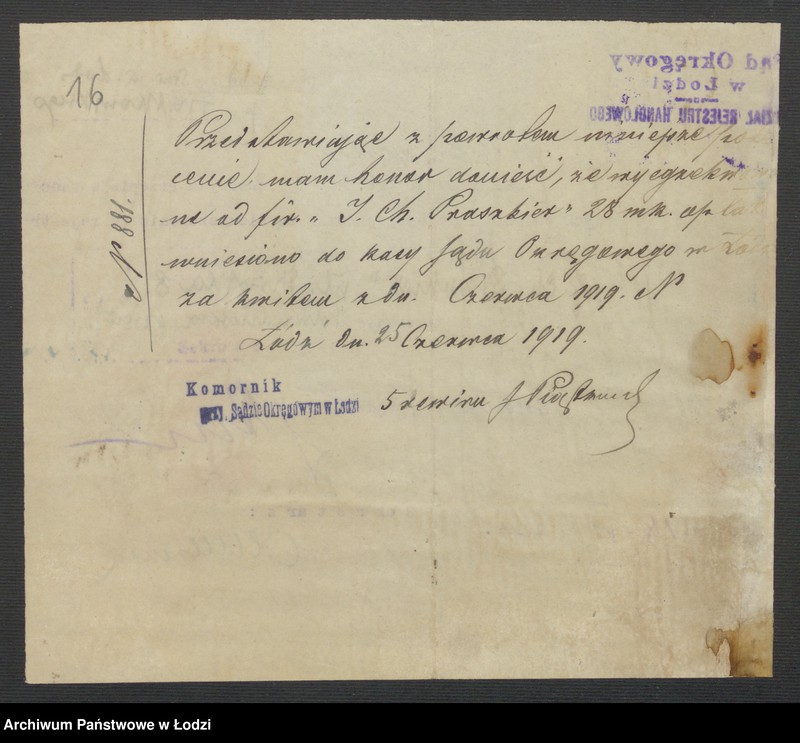 16
Sąd Okręgowy
w Łodzi
REJESTRU HANDLOWEGO
N 881.
Przedstawiając z powrotem niniejsze
cenie, mam honor donieść, że wyegzekwo
ne od fir. „ I. Ch. Praszkier " 28 mk. opłat
wniesiono do kasy Sądu Okręgowego w Łodzi
za kwitem z dn. Czerwca 1919. N
Łódź dn. 25 Czerwca 1919.
Komornik
przy Sądzie Okręgowym w Łodzi
5 rewiru
Archiwum Państwowe w Łodzi